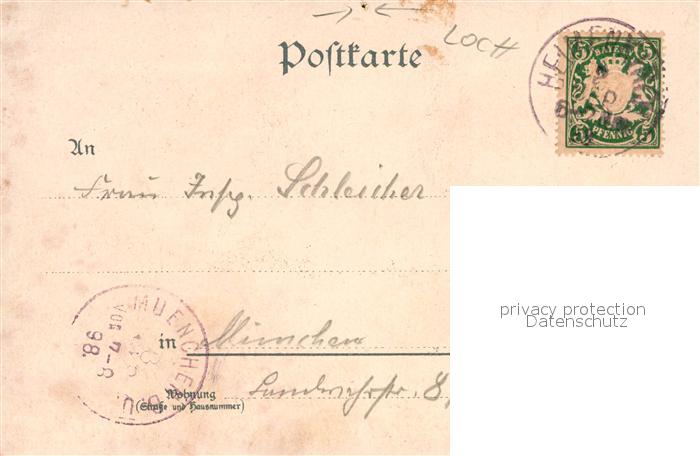 LOCH
Postkarte
BAYERN
5 5
5 PFENNIG 5
An
Frau Insp. Schleicher
privacy protection
Datenschutz
MUENCHEN
VOR 7-8
98.
in München
Wohnung
(Straße und Hausnummer)
8,